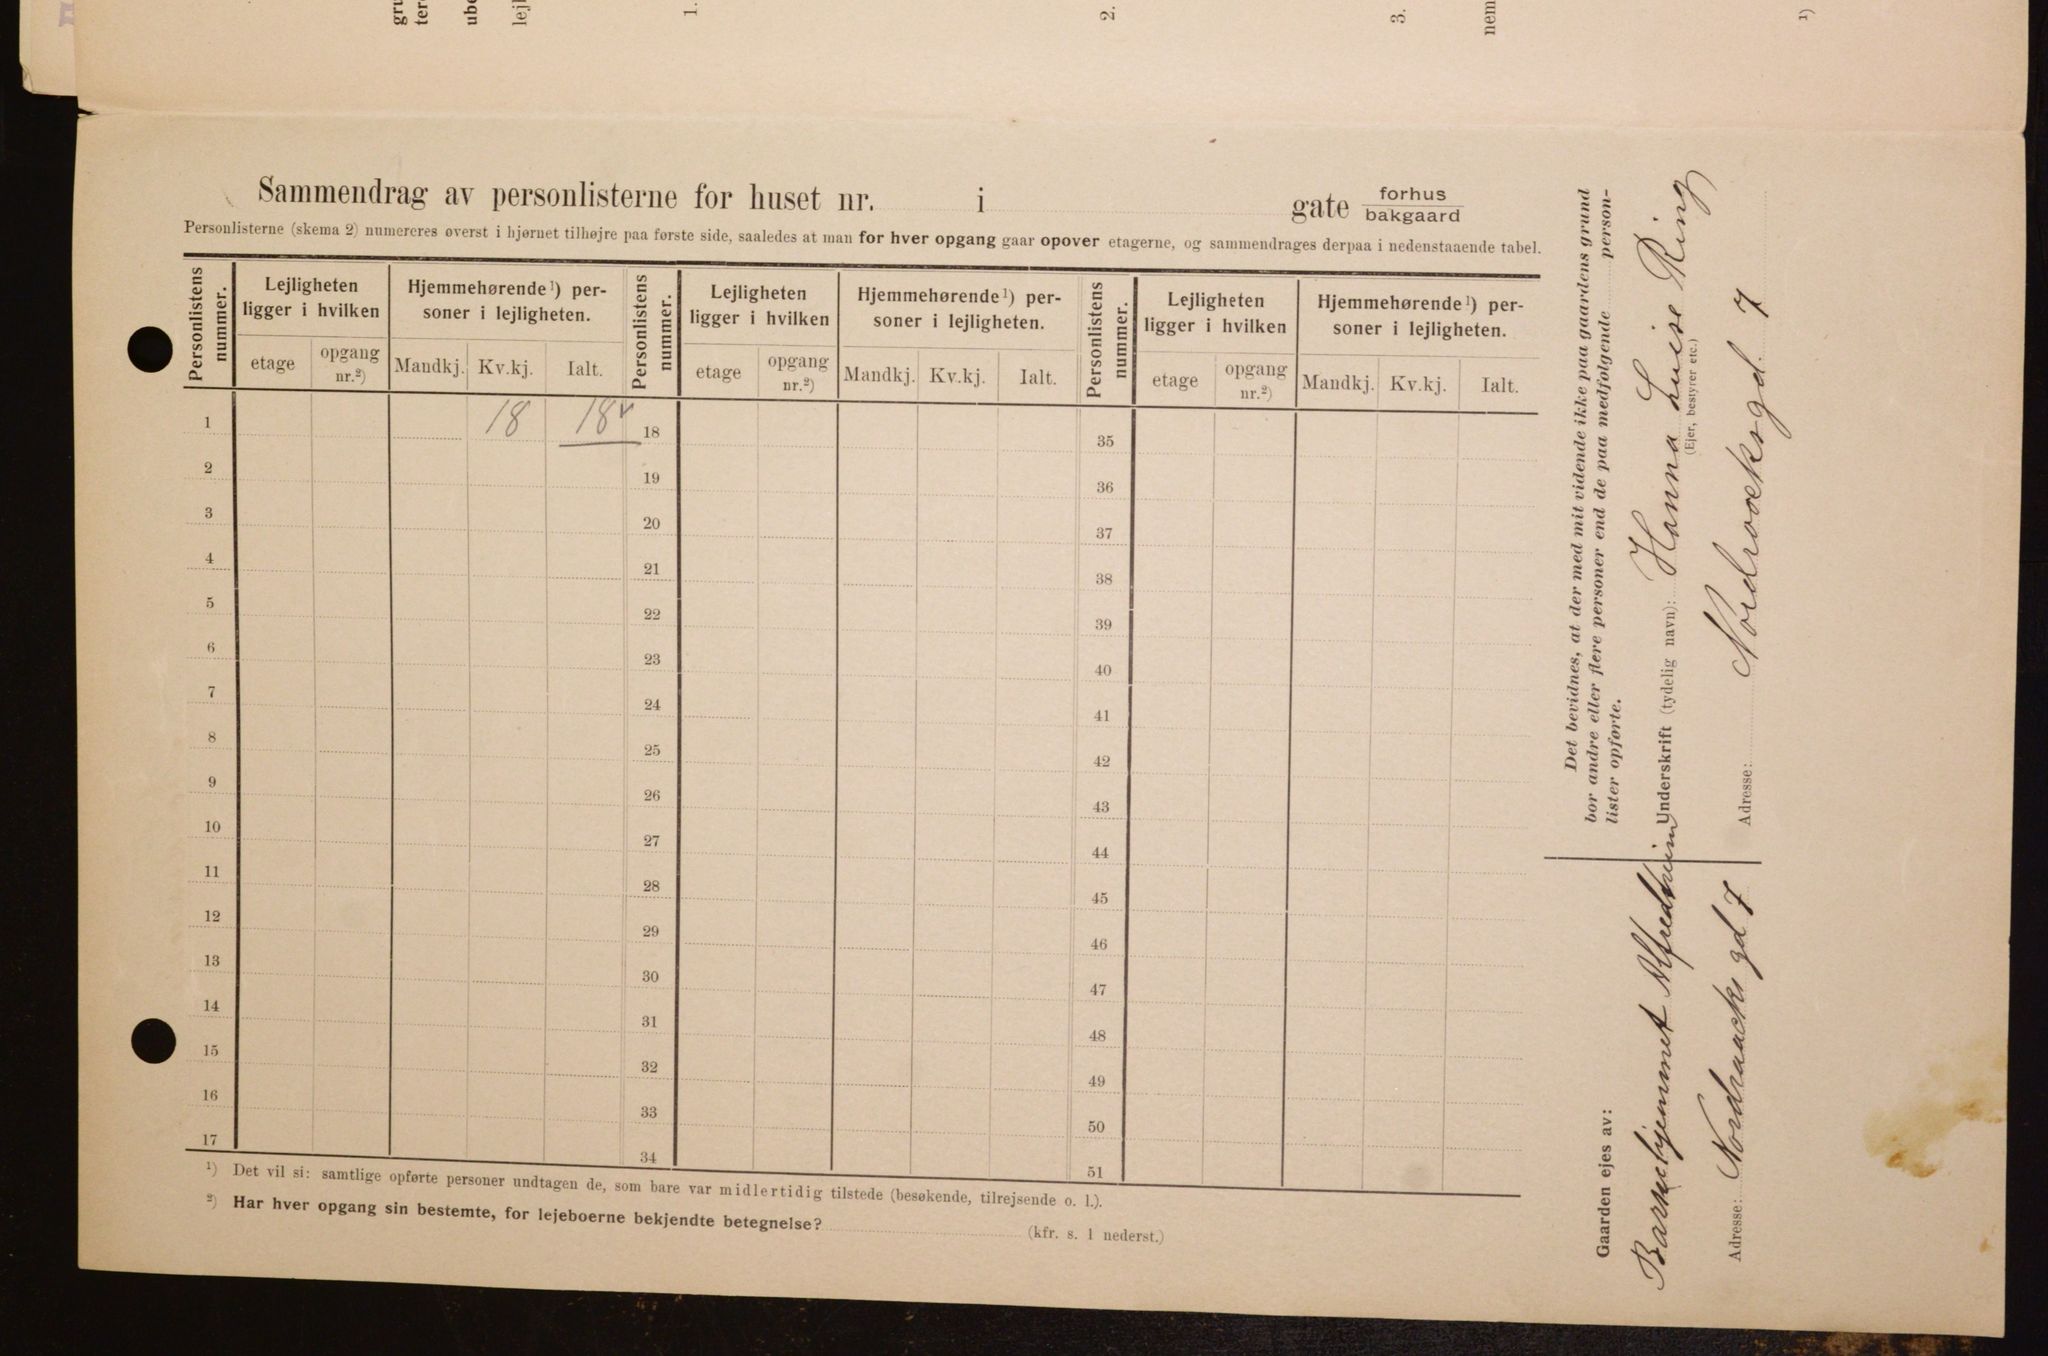 gru
ter
ube
lejl
1.
2.
3.
nem
1)
Sammendrag av personlisterne for huset nr. i gate forhus
bakgaard
Personlisterne (skema 2) numereres øverst i hjørnet tilhøjre paa første side, saaledes at man for hver opgang gaar opover etagerne, og sammendrages derpaa i nedenstaaende tabel.
Personlistens nummer. Lejligheten ligger i hvilken Hjemmehørende 1) personer i lejligheten. Personlistens nummer. Lejligheten ligger i hvilken Hjemmehørende 1) personer i lejligheten. Personlistens nummer. Lejligheten ligger i hvilken Hjemmehørende 1) personer i lejligheten.
etage opgang nr.2) Mandkj. Kv.kj. Ialt. etage opgang nr.2) Mandkj. Kv.kj. Ialt. etage opgang nr.2) Mandkj. Kv.kj. Ialt.
1 18 18 18 35
2 19 36
3 20 37
4 21 38
5 22 39
6 23 40
7 24 41
8 25 42
9 26 43
10 27 44
11 28 45
12 29 46
13 30 47
14 31 48
15 32 49
16 33 50
17 34 51
1) Det vil si: samtlige opførte personer undtagen de, som bare var midlertidig tilstede (besøkende, tilrejsende o. l.).
2) Har hver opgang sin bestemte, for lejeboerne bekjendte betegnelse? (kfr. s. 1 nederst.)
Det bevidnes, at der med mit vidende ikke paa gaardens grund
bor andre eller flere personer end de paa medfølgende person-
lister opførte.
Underskrift (tydelig navn): Hanna Luise Ring
(Ejer, bestyrer etc.)
Adresse: Nordraaksgd. 7
Gaarden ejes av:
Barnehjemmet Alfredheim
Adresse: Nordraachs gd 7